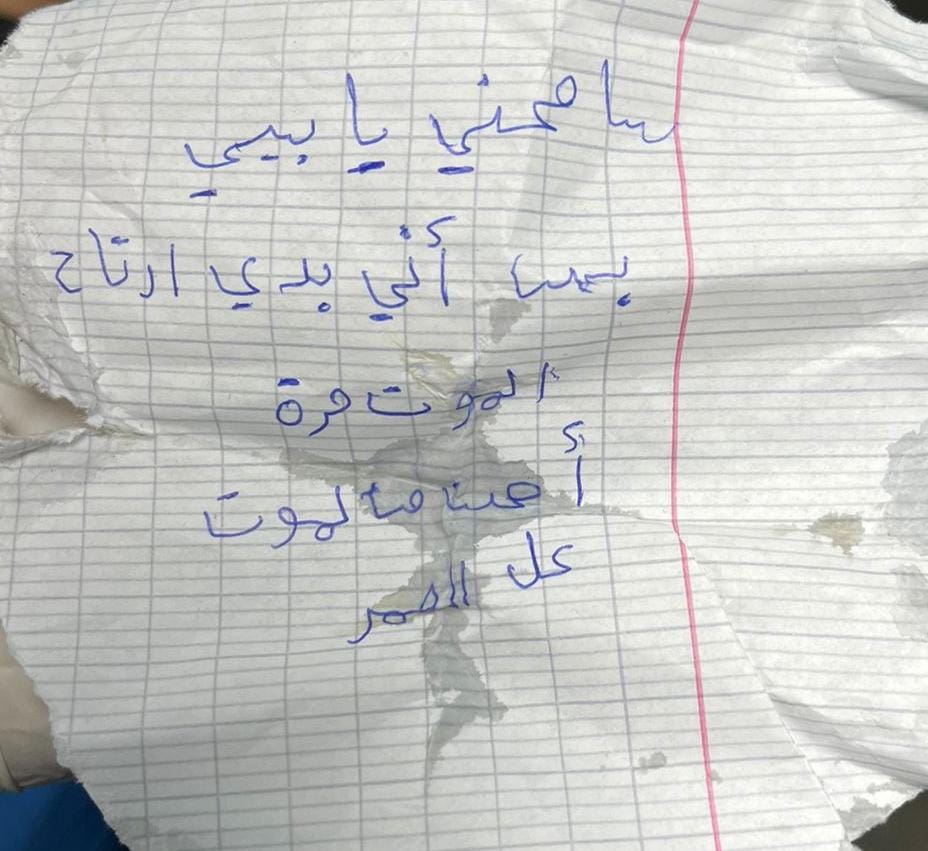 سامحني يا بيي
بس أني بدي ارتاح
الموت مرة
أهون من الموت
كل العمر